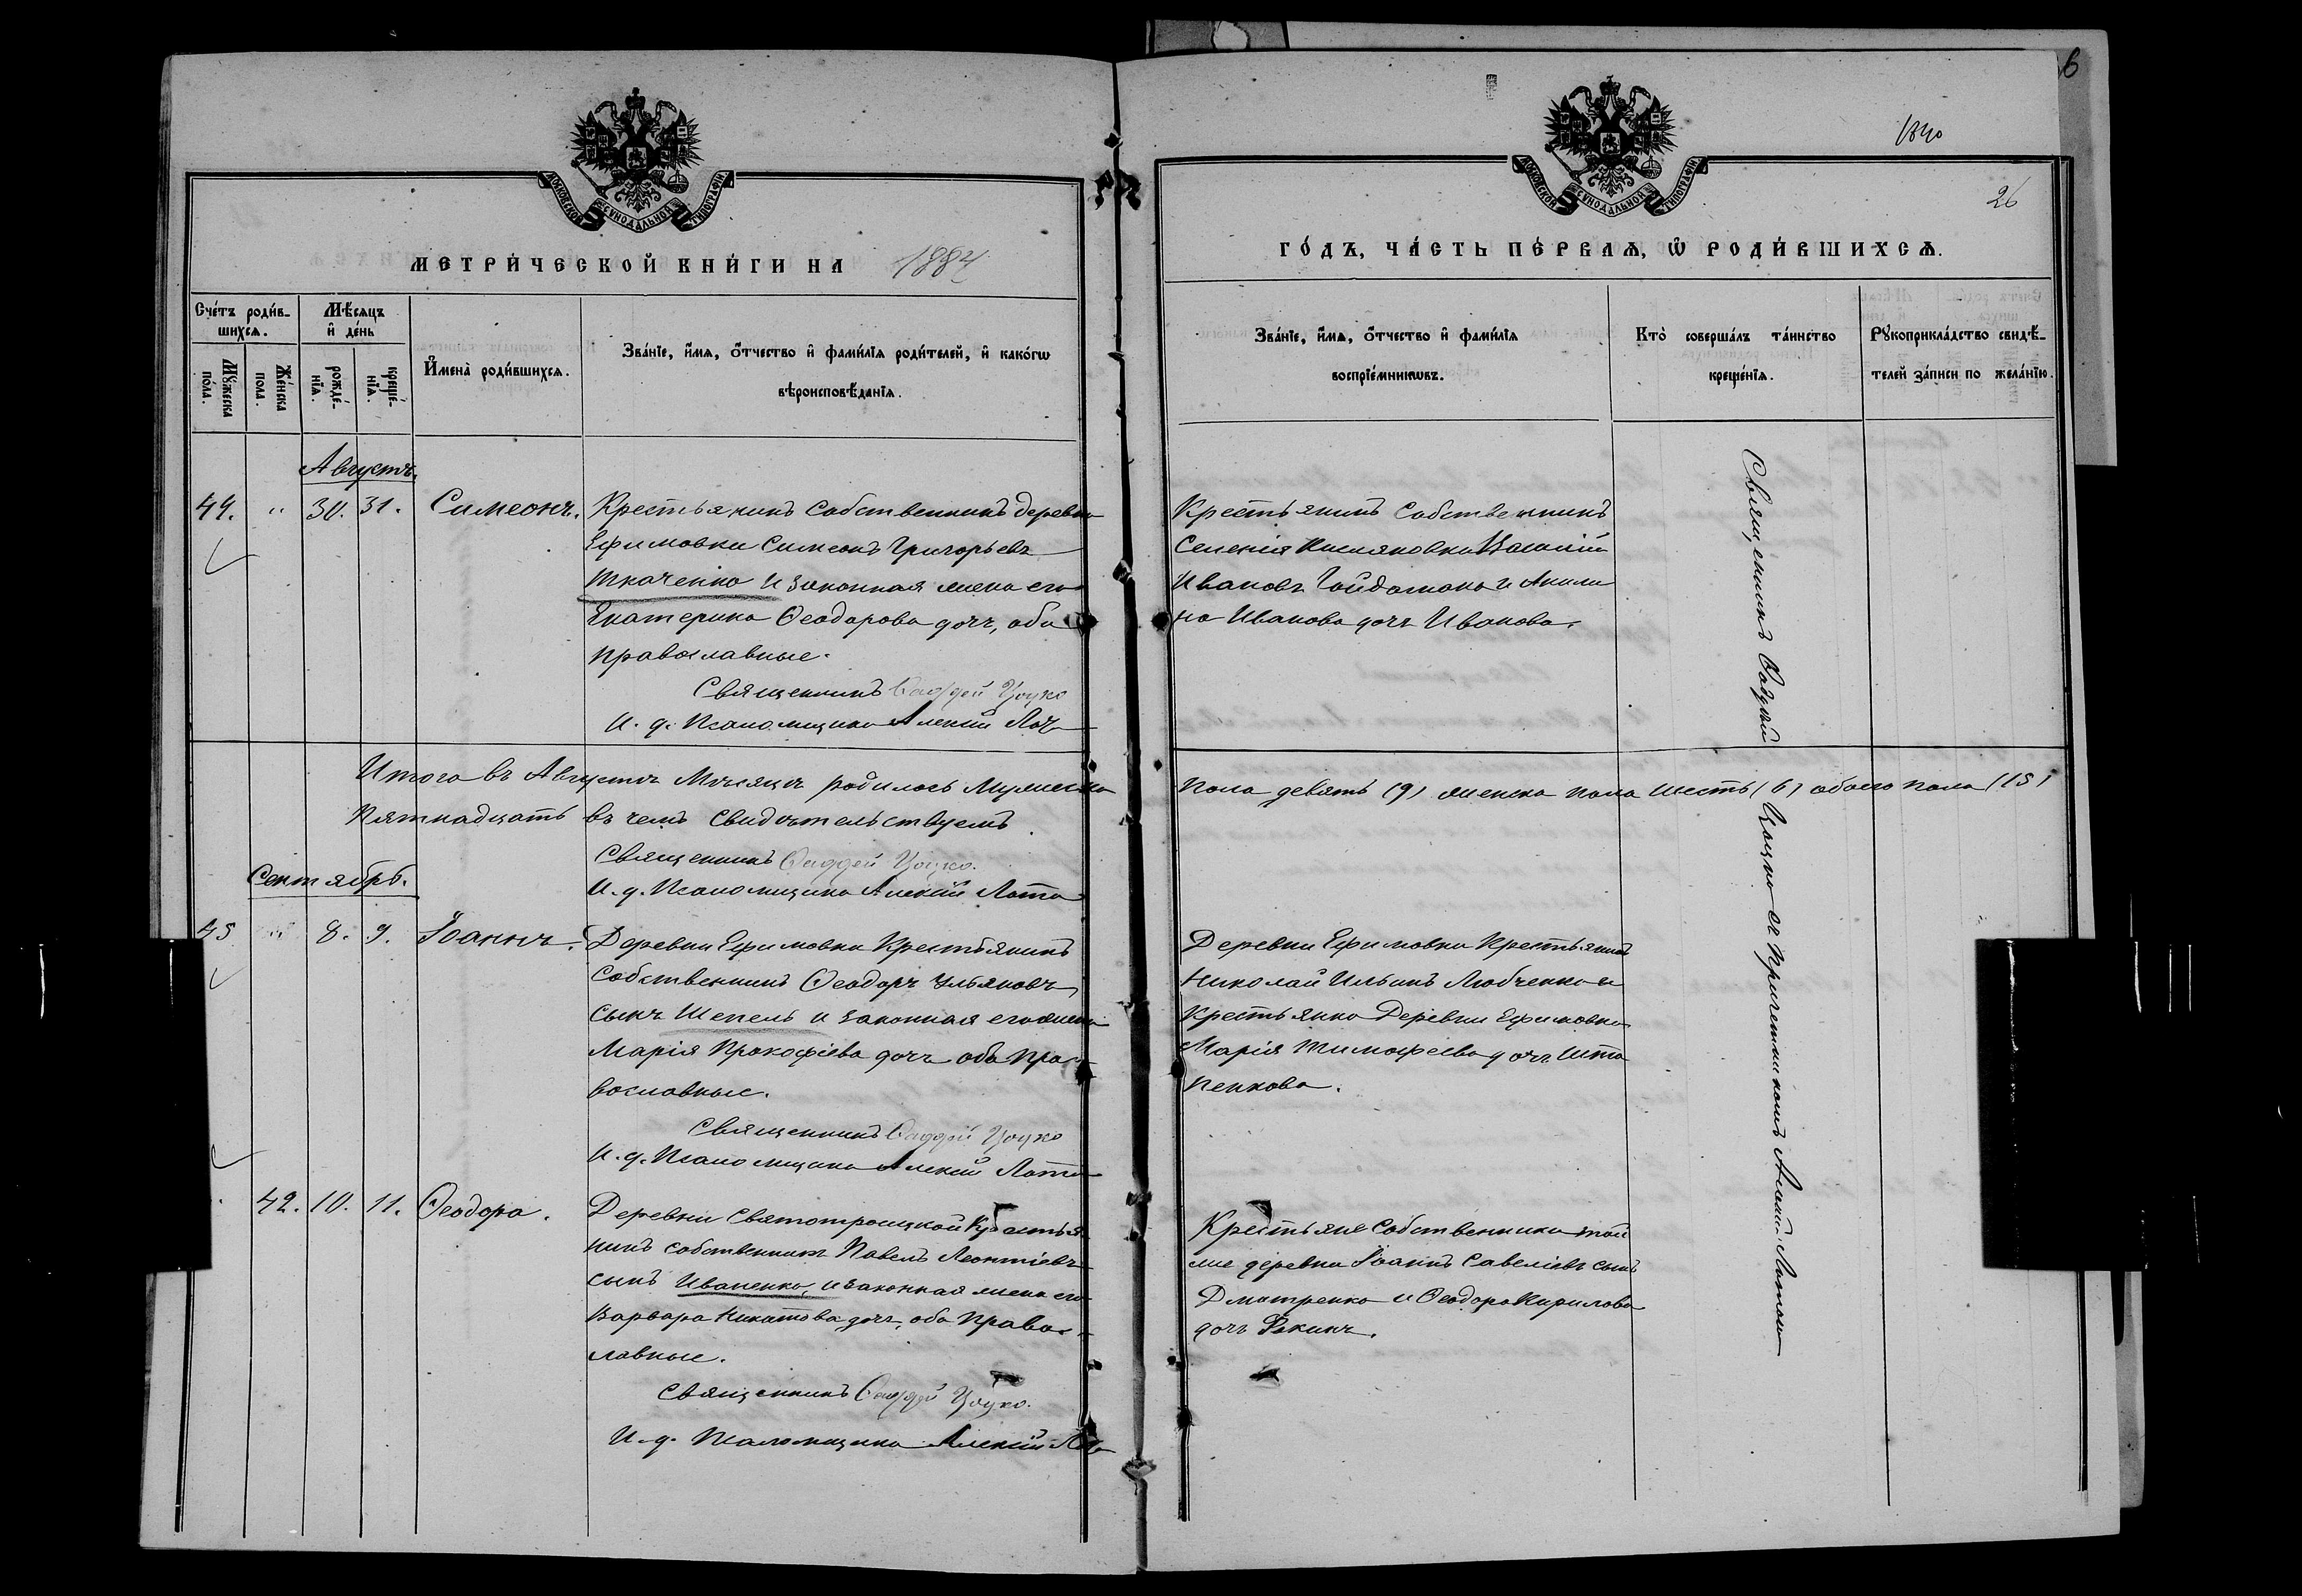 6
1840
26
МОСКОВСКОЙ СѴНОДАЛЬНОЙ ТИПОГРАФІИ
МЕТРИ́ЧЕСКОЙ КНИ́ГИ НА 1884
Сче́тъ роди́в-
шихсѧ.
Мѣ́сѧцъ
и҆ де́нь
Мꙋ́жеска
по́ла.
Же́нска
пола.
рожде́-
нїѧ.
креще́-
нїѧ.
И҆мена̀ роди́вшихсѧ.
Зва́нїе, и҆́мѧ, ѻ҆́тчество и҆ фами́лїѧ роди́телей, и҆ како́гѡ
вѣроисповѣ́данїѧ.
Августъ.
44. " 30. 31. Симеонъ.
Крестьянинъ собственникъ деревни
Ефимовки Симеонъ Григорьевъ
Ткаченко и законная жена его
Екатерина Ѳеодорова дочь, оба
православные.
Священникъ Ѳаддей Цоцко
И. д. Псаломщика Алексій
Итого въ Августѣ Мѣсяцѣ родилось Мужеска
Пятнадцать въ чемъ свидѣтельствуемъ
Священникъ Ѳаддей Цоцко.
И. д. Псаломщика Алексій
Сентябрь.
45 " 8. 9. Іоаннъ.
Деревни Ефимовки Крестьянинъ
собственникъ Ѳеодоръ Ульяновъ
сынъ Шепель и законная его жена
Марія Прокофіева дочь оба пра-
вославные.
Священникъ Ѳаддей Цоцко
И. д. Псаломщика Алексій
42. 10. 11. Ѳеодора.
Деревни Святотроицкой Крестья-
нинъ собственникъ Павелъ Леонтіевъ
сынъ Иваненко, и законная жена его
Варвара дочь, оба Правос-
лавные.
Священникъ Ѳаддей Цоцко.
И. д. Псаломщика Алексій
МОСКОВСКОЙ СѴНОДАЛЬНОЙ ТИПОГРАФІИ
ГО́ДЪ, ЧА́СТЬ ПЕ́РВАѦ, Ѡ҆ РОДИ́ВШИХСѦ.
Зва́нїе, и҆́мѧ, ѻ҆́тчество и҆ фами́лїѧ
воспрїе́мникѡвъ.
Кто̀ соверша́лъ та́инство
креще́нїѧ.
Рꙋкоприкла́дство свидѣ́-
телей за́писи по жела́нїю.
Крестьянинъ Собственникъ
Селенія Василій
Ивановъ Гайдамака и Акили
на Иванова дочь Иванова.
Пола девять (9) женска пола шесть (6) обоего пола (15)
Деревни Ефимовки Крестьянинъ
Николай Ильинъ Любченко и
Крестьянка Деревни Ефимовки
Марія Тимофеева дочь Шта
пенкова.
Крестьяне собственники той
же деревни Іоаннъ Савеліевъ сынъ
Дмитренко и Ѳеодора Кирилова
дочь
Священникъ Ѳаддей Цоцко съ Причетникомъ Алексій